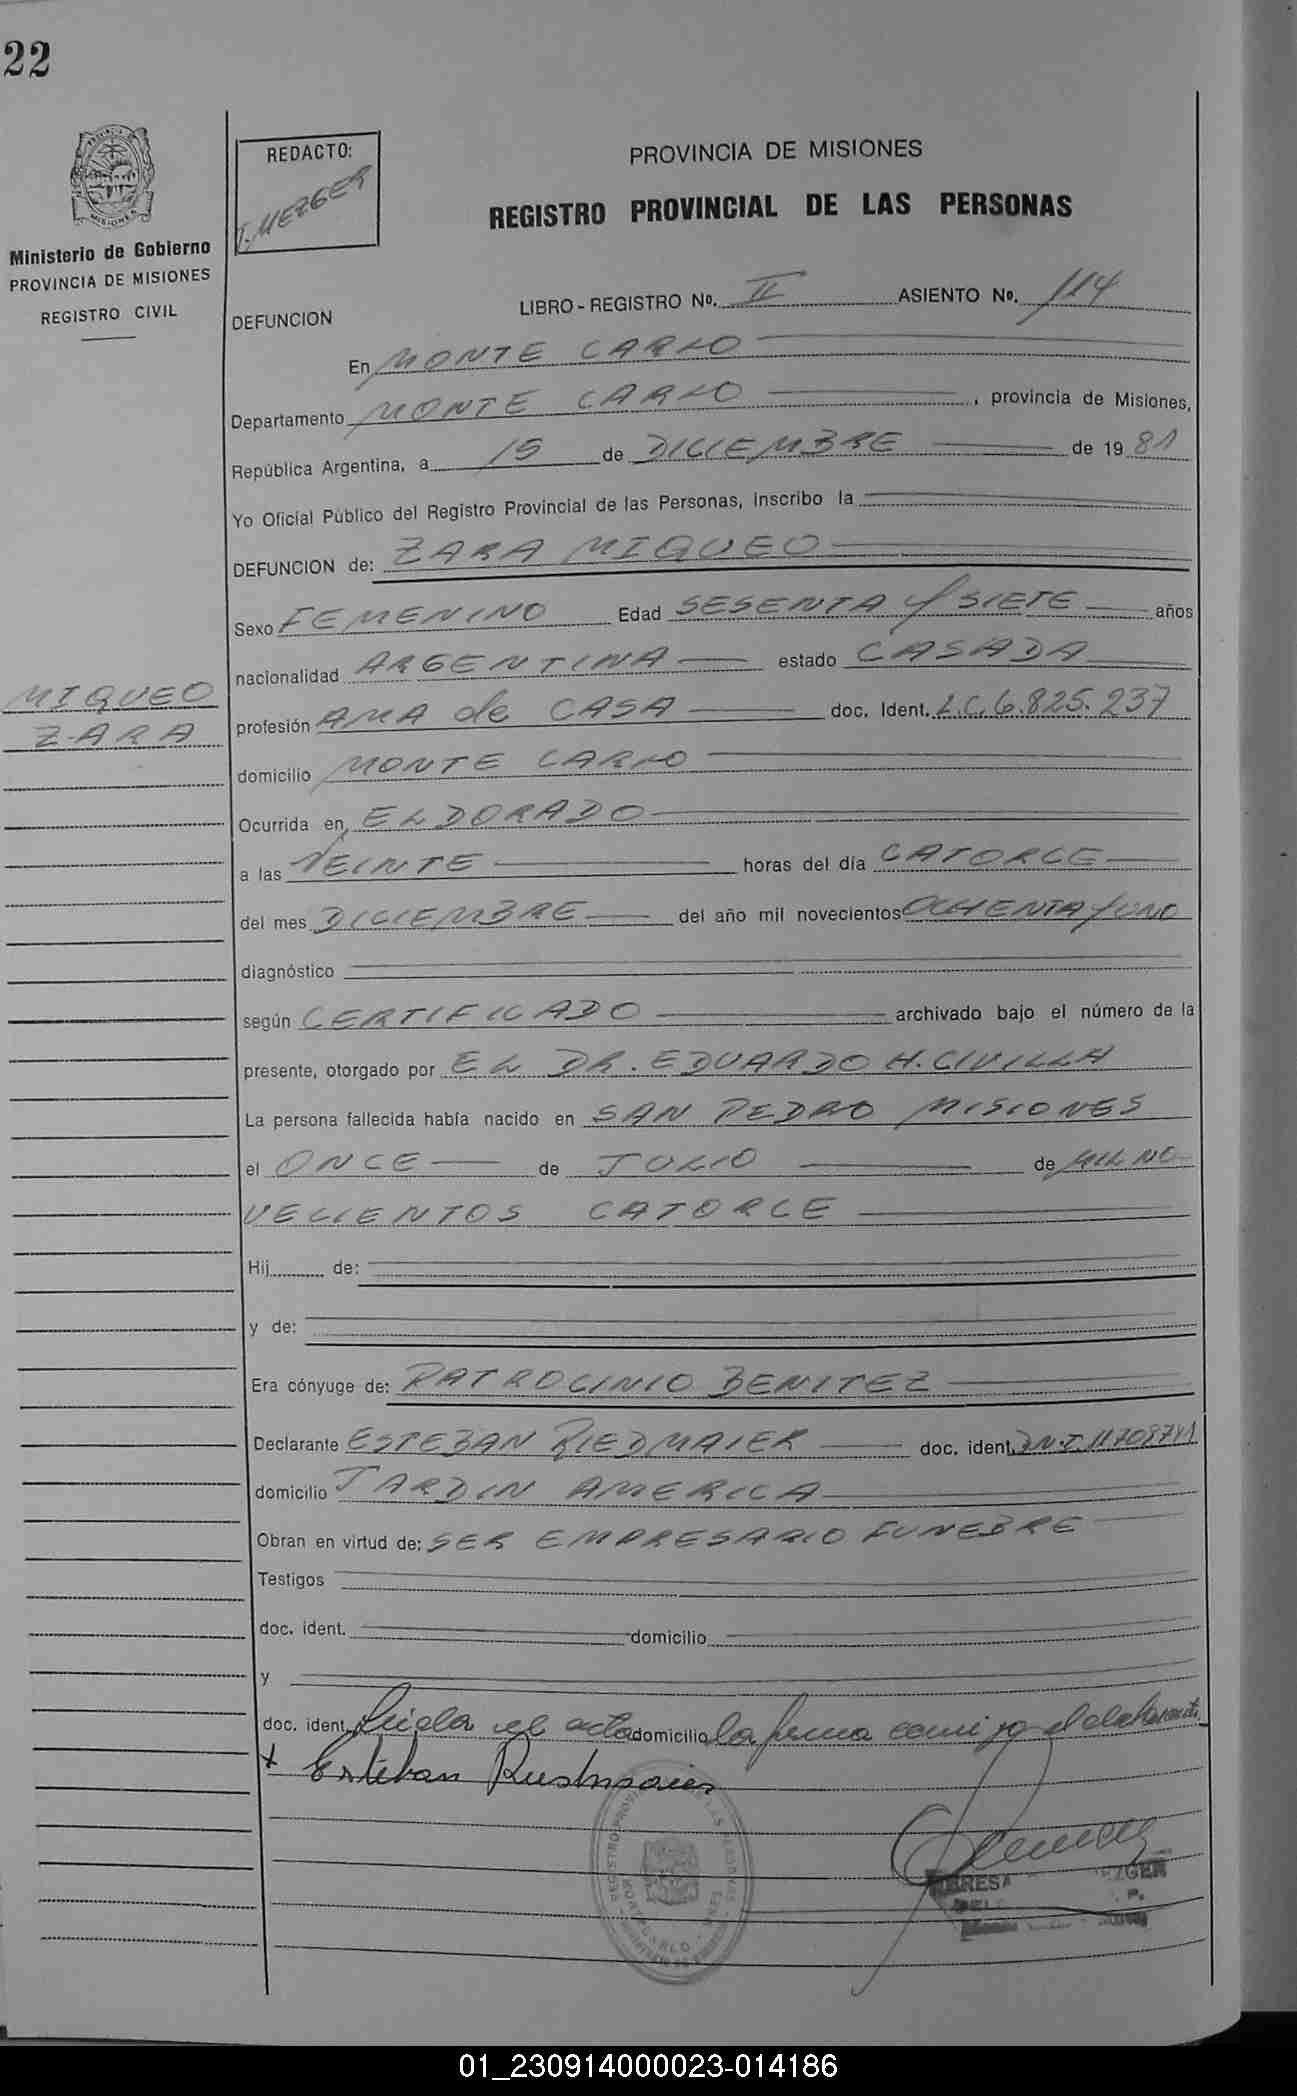 22
REDACTO:
T. MEZGER
PROVINCIA DE MISIONES
REGISTRO PROVINCIAL DE LAS PERSONAS
MISIONES
Ministerio de Gobierno
PROVINCIA DE MISIONES
REGISTRO CIVIL
LIBRO - REGISTRO No. II ASIENTO No. 114
DEFUNCION
En MONTE CARLO
Departamento MONTE CARLO, provincia de Misiones,
República Argentina, a 15 de DICIEMBRE de 1981
Yo Oficial Público del Registro Provincial de las Personas, inscribo la
DEFUNCION de: ZARA MIQUEO
Sexo FEMENINO Edad SESENTA Y SIETE años
nacionalidad ARGENTINA estado CASADA
MIQUEO
ZARA
profesión AMA de CASA doc. Ident. L.C. 6.825.237
domicilio MONTE CARLO
Ocurrida en ELDORADO
a las VEINTE horas del día CATORCE
del mes DICIEMBRE del año mil novecientos OCHENTA Y UNO
diagnóstico
según CERTIFICADO archivado bajo el número de la
presente, otorgado por EL DR. EDUARDO H. CIVILLA
La persona fallecida había nacido en SAN PEDRO MISIONES
el ONCE de JULIO de MIL NO-
VECIENTOS CATORCE
Hij de:
y de:
Era cónyuge de: PATROCINIO BENITEZ
Declarante ESTEBAN RIEDMAIER doc. ident. D.N.I.
domicilio JARDIN AMERICA
Obran en virtud de: SER EMPRESARIO FUNEBRE
Testigos
doc. ident. domicilio
y
doc. ident. Leida el acta domicilio la firma conmigo el declarante
x Esteban
01_230914000023-014186